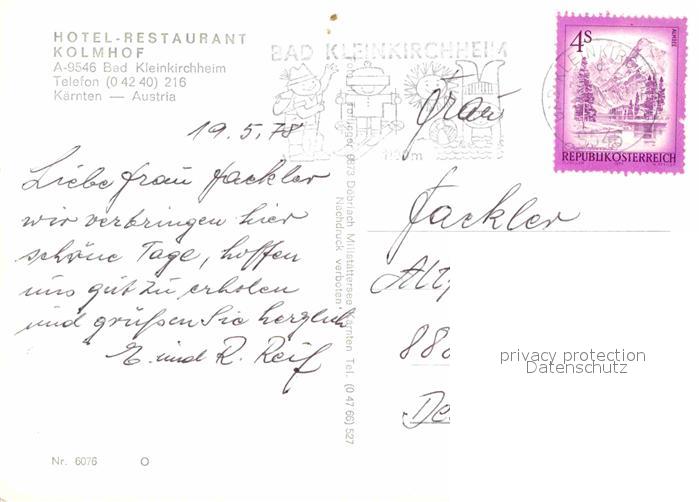 HOTEL-RESTAURANT
KOLMHOF
A-9546 Bad Kleinkirchheim
Telefon (0 42 40) 216
Kärnten — Austria
BAD KLEINKIRCHHEIM
4S
ALMSEE
REPUBLIK ÖSTERREICH
19.5.78
Liebe Frau Fackler
wir verbringen hier
schöne Tage, hoffen
uns gut zu erholen
und grüßen Sie herzlich
E. und R. Reif
Frau
Fackler
Alt
880
De
9873 Döbriach Millstättersee Kärnten Tel. (0 47 66) 527
Nachdruck verboten
privacy protection
Datenschutz
Nr. 6076 O